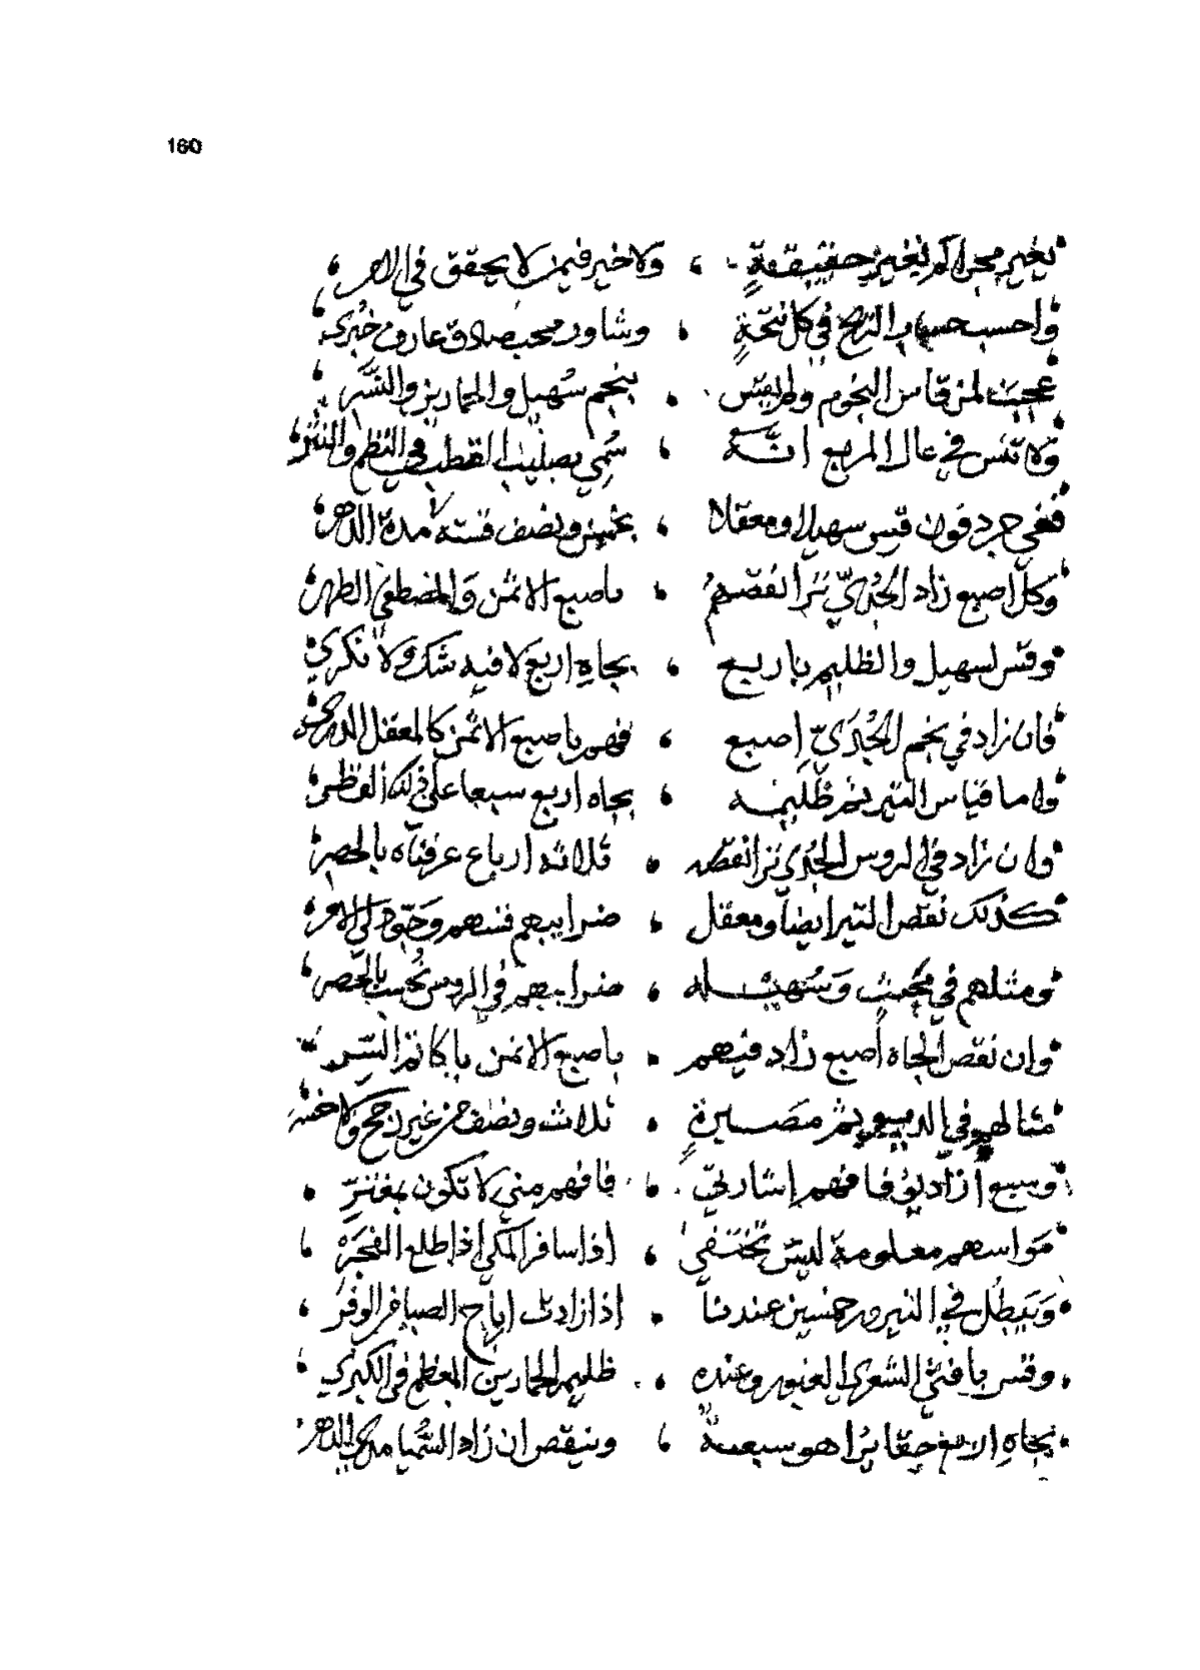 160
تغير مجراكم تغير حقيقةٍ ، ولا خير فيمن لا يحقق في الامر
واحسب حساب الترح في كل نتخةٍ ، وشاور محب صادق عارف خبري
عجبت لمن قاس النجوم ولم يقس ، بنجم سُهيل والحمارين والنَّسر
ولا تنس في المربع انَّه ، سُمي بصليب القطب في النظم والنثر
ففي جردفون قيس سهيلا ومعقلا ، بخمس ونصف قسته مدة الدهر
وكل اصبع زاد الجُديّ ترا نقصهمُ ، باصبع الاثمن والمصطفى الطهر
وقس لسهيل والظليم باربع ، بجاهِ اربع لا فيه شك ولا نكري
فان زاد في نجم الجُدَيّ إصبع ، فهم باصبع الاثمن كالمعقل الدري
واما قياس التير ثم ظَليمه ، بجاه اربع سبعا على ذلك القطر
وان زاد في الروس الجُدي ترا نقصه ، ثلاثه ارباع عرفناه بالحصر
كذلك نقص التير ايضاً ومعقل ، ضرايبهم قسهم وجوّد لي الامر
ومثلهم في محنث وسُهيله ، ضرايبهم في الروس تُحسب بالحصر
وان نقص الجاه أصبع زاد فيهم ، باصبع الاثمن يا كاتم السّر
مثالهم في الديبع ثم مَصيرةٍ ، ثلاث ونصف من غير رجح ولا خسر
وسبع ازاديوُ فافهم إشارتيّ ، فافهم مني لا تكون بمغترّ
مَواسهم معلومة ليس تختفي ، اذا سافر المكي اذا طلع الفجرَ
وَيَبطُل في النيروز خمسين عندنا ، اذا زادت ارياح الصبا فر الوفرُ
وقس يا فتى الشعرى العبور وعنده ، ظليم الحمارين المعظم في الكبري
بجاهِ الاربع حقا يرا هو سبعة ، وينقص ان زاد السُّميا مدى الدهر